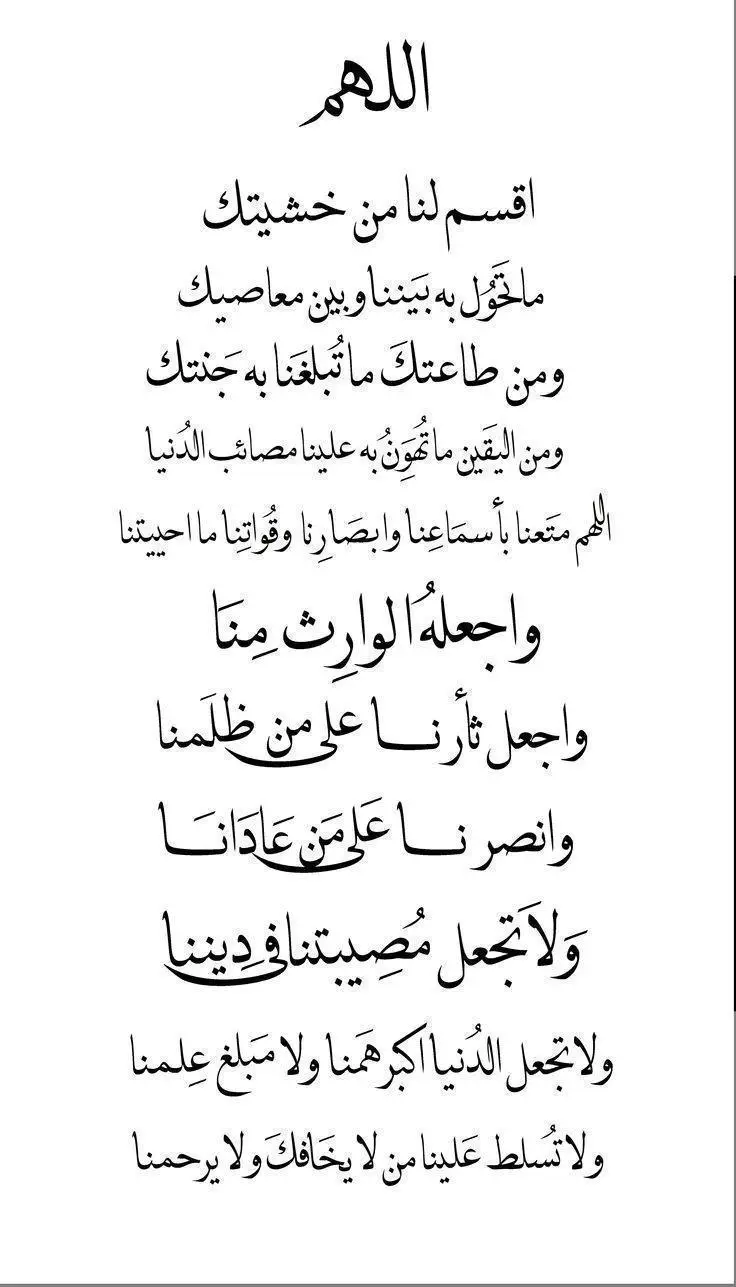 اللهم
اقسم لنا من خشيتك
ما تَحَوُل به بَيَننا وبين معاصيك
ومن طاعتكَ ما تُبلغَنا به جَنتك
ومن اليقَين ما تُهَوِنُ به علينا مصائب الدُنيا
اللهم متَعنا بأسمَاعِنا وابصَارِنا وقُواتِنا ما احييتنا
واجعلهُ الوارِث مِنَا
واجعل ثأرنــا على من ظلَمنا
وانصرنــا عَلى مَن عَادَانَــا
وَلاَ تَجعل مُصِيبتنا في دِيننا
ولا تجعل الدُنيا اكبر هَمَنا ولا مَبلغ عِلمنا
ولا تُسلط عَلينا من لا يخَافكَ ولا يرحمنا